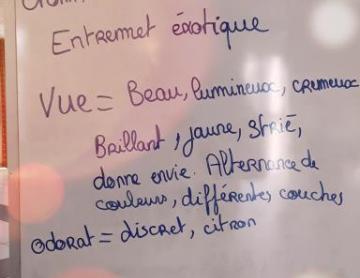 Entremet éxotique
Vue = Beau, lumineux, crémeux
Brillant, jaune, strié,
donne envie. Alternance de
couleurs, différentes couches
Odorat = discret, citron